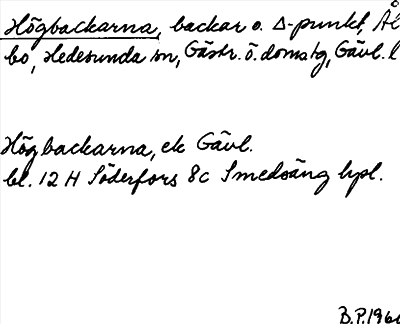 Högbackarna, backar o. Δ-punkt, Ål
bo, Hedesunda sn, Gästr. ö. domsg, Gävl. l
Högbackarna, ek Gävl.
bl. 12 H Söderfors 8c Smedsäng hpl.
B.P. 196